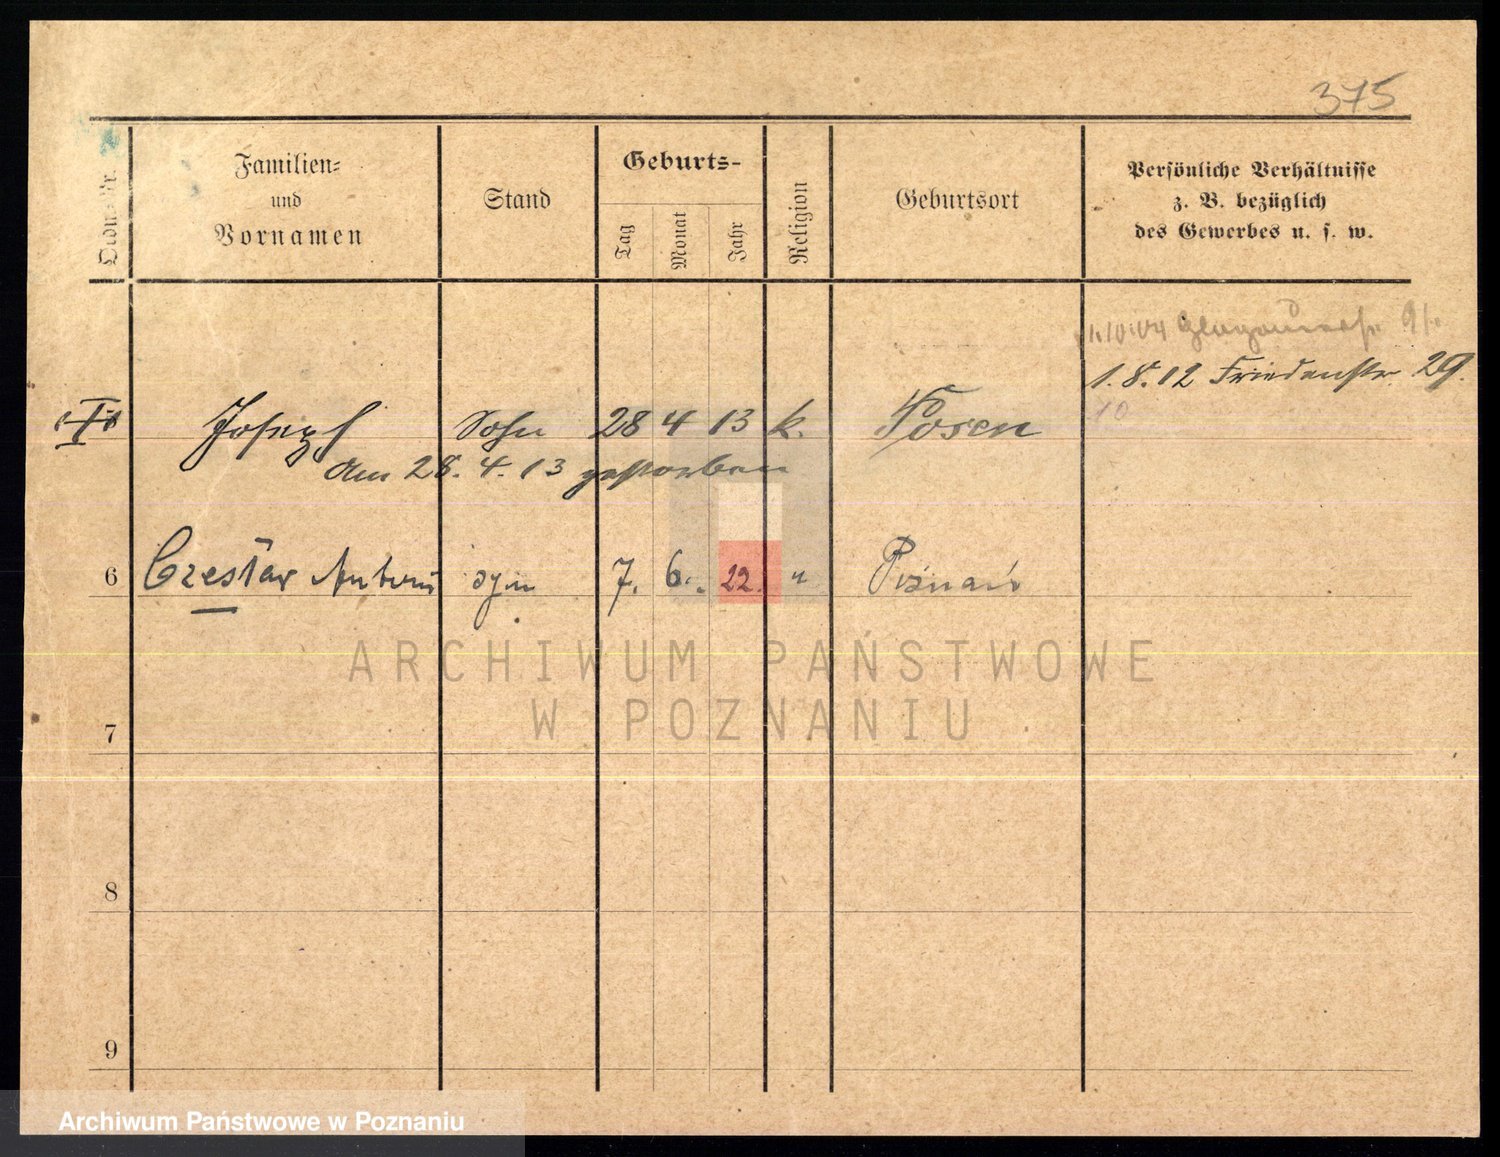 375
Ordn.-Nr.
Familien-
und
Vornamen
Stand
Geburts-
Tag
Monat
Jahr
Religion
Geburtsort
Persönliche Verhältnisse
z. B. bezüglich
des Gewerbes u. s. w.
1.8.12 Friedenstr. 29.
10
Joseph Sohn 28 4 13 k. Posen
am 28. 4. 13 gestorben
6 Czesław Antoni syn 7. 6. 22. " Poznań
ARCHIWUM PAŃSTWOWE
W POZNANIU
7
8
9
Archiwum Państwowe w Poznaniu